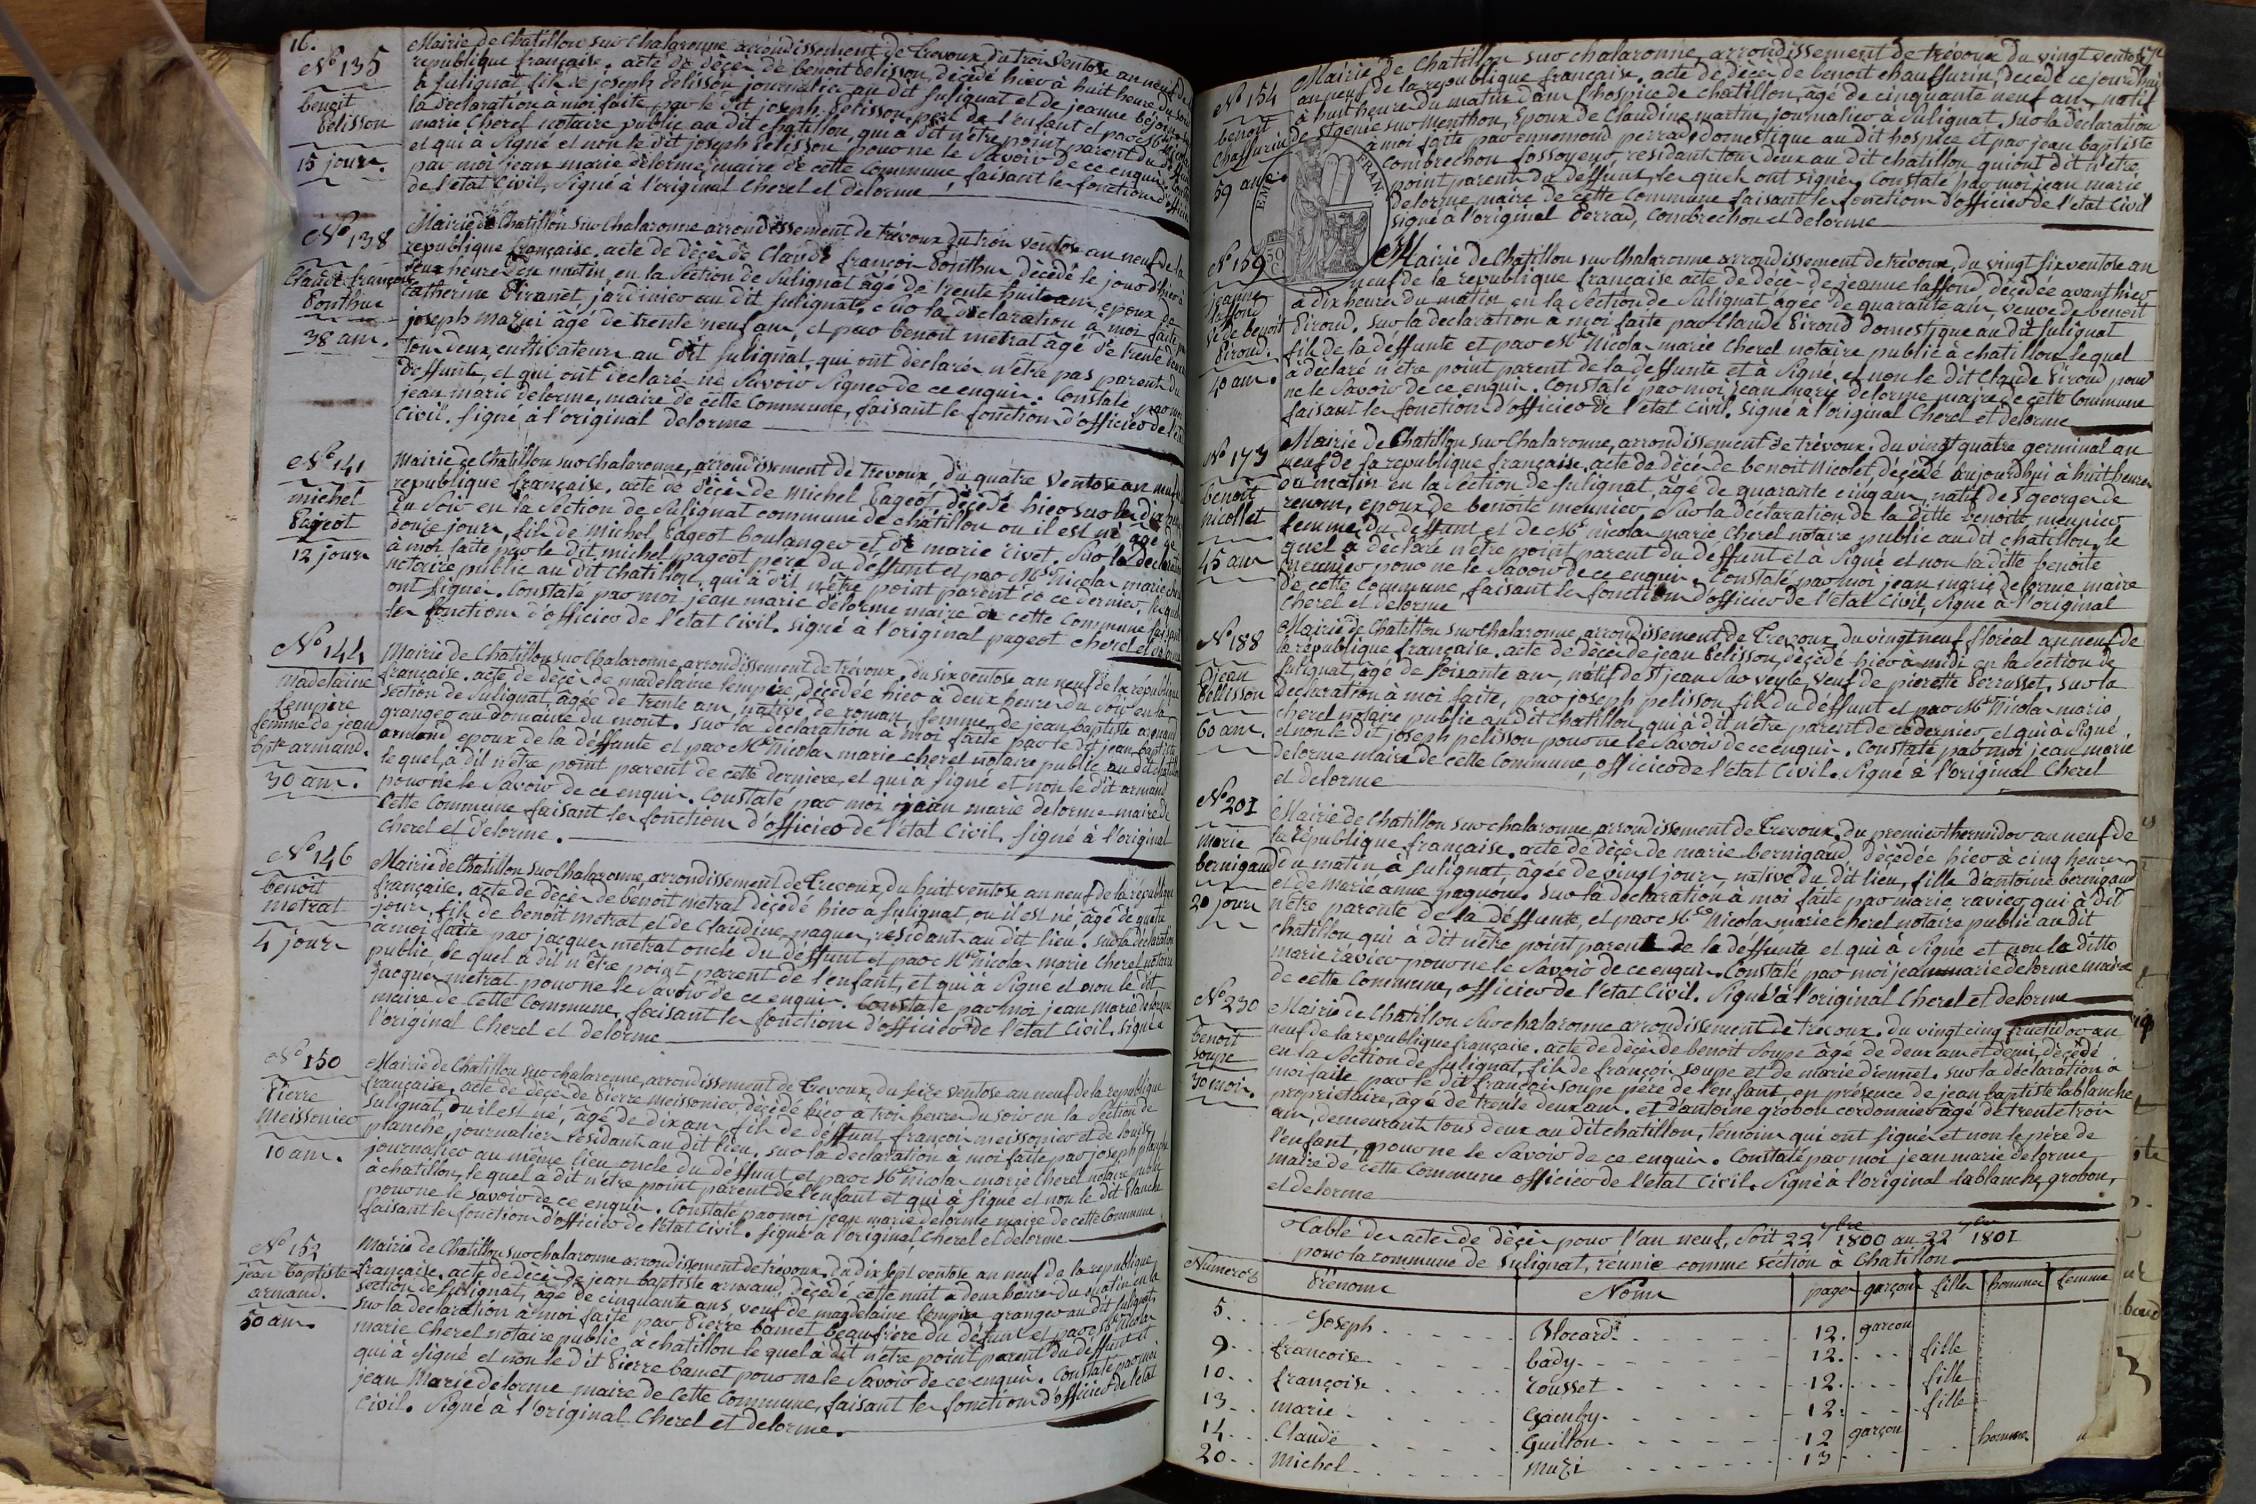 16.
N.º 135
benoit
Pelisson
15 jours.
Mairie de Chatillon sur Chalaronne arrondissement de Trevoux du trois Ventose an neuf de la
republique française. acte de décès de benoit Pelisson, décédé hier à huit heures du soir
à Sulignat, fils de joseph Pelisson journalier au dit Sulignat et de jeanne
la declaration à moi faite par le dit joseph Pelisson, père de l'enfant et par
marie Cherel notaire public au dit chatillon, qui à dit n'être point parent du
et qui à Signé et non le dit joseph Pelisson pour ne le Savoir de ce enquis.
par moi jean marie delorme, maire de cette Commune, faisant les fonctions d'officier
de l'état Civil, Signé à l'original Cherel et delorme
N.º 138
Claude françois
Ponthus
38 ans.
Mairie de Chatillon sur Chalaronne arrondissement de trévoux du trois ventose an neuf de la
republique française. acte de décès de Claude françois Ponthus décédé le jour d'hier à
deux heures du matin, en la Section de Sulignat âgé de trente huit ans, epoux de
Catherine Piranet, jardinier au dit Sulignat, Sur la déclaration à moi faite par
joseph Maziri âgé de trente neuf ans, et par benoit metral âgé de trente
tous deux cultivateurs au dit Sulignat, qui ont declarés n'être pas parents du
deffunt, et qui ont declaré ne Savoir Signer de ce enquis. Constaté par moi
jean marie delorme, maire de cette Commune, faisant les fonctions d'officier de l'état
Civil. Signé à l'original delorme
N.º 141
michel
Pageot
12 jours
Mairie de Chatillon sur Chalaronne, arrondissement de Trevoux, du quatre Ventose an neuf
republique française. acte de décès de Michel Pageot, décédé hier sur les dix heures
du Soir en la Section de Sulignat commune de chatillon ou il est né âgé de
douze jours, fils de Michel Pageot boulanger et de marie rivet. Sur la declaration
à moi faite par le dit michel pageot père du deffunt et par M.e Nicolas marie
notaire public au dit Chatillon, qui à dit n'être point parent de ce dernier, les quels
ont Signés. Constaté par moi jean marie delorme maire de cette Commune faisant
les fonctions d'officier de l'état Civil. Signé à l'original pageot cherel et delorme
N.º 144
madelaine
Lempere
femme de jean
bpte armand.
30 ans.
Mairie de Chatillon sur Chalaronne, arrondissement de trévoux, du six ventose an neuf de la republique
française. acte de décès de madelaine Lempère, décédée hier à deux heures du Soir en la
Section de Sulignat, âgée de trente ans, native de roman, femme de jean baptiste armand
granger au domaine du mont. Sur la declaration à moi faite par le dit jean baptiste
armand epoux de la deffunte et par M.e Nicolas marie cherel notaire public au dit chatillon
le quel, à dit n'être point parent de cette derniere, et qui à Signé et non le dit armand
pour ne le Savoir de ce enquis. Constaté par moi jean marie delorme maire de
Cette Commune faisant les fonctions d'officier de l'état Civil, Signé à l'original
Cherel et delorme.
N.º 146
benoit
metrat
4 jours
Mairie de Chatillon sur Chalaronne, arrondissement de Trevoux, du huit ventose an neuf de la république
française. acte de décès de bénoit metral décédé hier a Sulignat, ou il est né âgé de quatre
jours, fils de benoit metrat et de Claudine paquer, residants au dit lieu. Sur la declaration
à moi faite par jacques metrat oncle du deffunt et par M.e Nicolas marie Cherel notaire
public, le quel à dit n'être point parent de l'enfant, et qui à Signé et non le dit
jacques metrat, pour ne le Savoir de ce enquis. Constaté par moi jean marie delorme
maire de Cette Commune, faisant les fonctions d'officier de l'état Civil. Signé à
l'original Cherel et delorme
N.º 150
Pierre
Meissonier
10 ans.
Mairie de Chatillon sur chalaronne, arrondissement de Trevoux, du seize ventose an neuf de la republique
française. acte de décès de Pierre Meissonier, décédé hier a trois heures du soir en la Section de
Sulignat, ou il est né, âgé de dix ans, fils de déffunt françois meissonier et de louise
planche, journalier résidant au dit lieu, sur la déclaration à moi faite par joseph planche
journalier au même lieu oncle du deffunt et par M.e Nicolas marie Cherel notaire public
à chatillon, le quel à dit n'être point parent de l'enfant et qui à Signé et non le dit Planche
pour ne le savoir de ce enquis. Constaté par moi jean marie delorme maire de cette Commune
faisant les fonctions d'officier de l'état Civil. Signé à l'original, Cherel et delorme
N.º 152
jean baptiste
armand.
50 ans.
Mairie de Chatillon sur chalaronne arrondissement de trévoux. du dix sept ventose an neuf de la republique
française. acte de décès de jean baptiste armand, décédé cette nuit à deux heures du matin en la
Section de Sulignat, âgé de cinquante ans, veuf de magdelaine Lempire granger au dit Sulignat
Sur la declaration à moi faite par Pierre bamet beaufrère du défunt et par M.e Nicolas
marie Cherel notaire public à chatillon le quel à dit n'être point parent du deffunt et
qui à Signé et non le dit Pierre bamet pour ne le Savoir de ce enquis. Constaté par moi
jean Marie delorme maire de Cette Commune, faisant les fonctions d'officier de l'état
Civil. Signé à l'original Cherel et delorme.
N.º 154
benoit
Chaffurin
59 ans.
Mairie de Chatillon sur chalaronne, arrondissement de trévoux du vingt ventose
an neuf de la republique française. acte de décès de benoit chauffurin, décédé ce jourd'hui
à huit heures du matin dans l'hospice de chatillon, âgé de cinquante neuf ans, natif
de St genis sur Menthon, Epoux de Claudine martin, journalier à Sulignat. Sur la déclaration
à moi faite par ennemond perrad, domestique au dit hospice et par jean baptiste
Combrechon fossoyeur, residants tous deux au dit chatillon qui ont dit n'être
point parents du deffunt, les quels ont Signés, Constaté par moi jean marie
delorme maire de cette Commune faisant les fonctions d'officier de l'état Civil
Signé à l'original Perrad, Combrechon et delorme
N.º 159
jeanne
laffond
v.e de benoit
Piroud.
40 ans.
Mairie de Chatillon sur Chalaronne arrondissement de trévoux, du vingt six ventose an
neuf de la republique française acte de décès de jeanne laffond décédée avant hier
à dix heures du matin en la Section de Sulignat, agée de quarante ans, veuve de benoit
Piroud. Sur la declaration à moi faite par Claude Piroud domestique au dit Sulignat
fils de la deffunte et par M.e Nicolas marie Cherel notaire public à chatillon le quel
à déclaré n'être point parent de la deffunte et à Signé, et non le dit Claude Piroud pour
ne le Savoir de ce enquis. Constaté par moi jean marie delorme maire de cette Commune
faisant les fonctions d'officier de l'état Civil. Signé à l'original Cherel et delorme
N.º 173
benoit
nicollet
45 ans
Mairie de Chatillon sur Chalaronne, arrondissement de trévoux. du vingt quatre germinal an
neuf de la republique française, acte de décès de benoit Nicolet, décédé aujourdhui à huit heures
du matin en la Section de Sulignat, âgé de quarante cinq ans, natif de St george de
renom, epoux de benoite meunier, Sur la déclaration de la ditte benoite, meunier
femme du deffunt et de M.e nicolas marie Cherel notaire public au dit chatillon, le
quel à déclaré n'être point parent du deffunt et à Signé et non la ditte benoite
meunier pour ne le Savoir de ce enquis, Constaté par moi jean marie delorme maire
de cette Commune, faisant les fonctions d'officier de l'état Civil, Signé à l'original
Cherel et delorme
N.º 188
jean
Pellisson
60 ans.
Mairie de Chatillon sur Chalaronne, arrondissement de Trevoux du vingt neuf floréal an neuf de
la république française. acte de décès de jean Pelisson, décédé hier à midi en la Section de
Sulignat, âgé de Soixante ans, natif de St jean Sur veyle, veuf de pierette Perrusset. Sur la
declaration à moi faite, par joseph pelisson fils du deffunt et par M.e Nicolas marie
Cherel notaire public au dit Chatillon, qui à dit n'etre parent de ce dernier, et qui à Signé
et non le dit joseph pelisson pour ne le Savoir de ce enquis. Constaté par moi jean marie
delorme maire de cette Commune, officier de l'état Civil. Signé à l'original Cherel
et delorme
N.º 201
Marie
bernigaud
20 jours
Mairie de Chatillon sur chalaronne, arrondissement de Trevoux, du premier thermidor an neuf de
la république française. acte de décès de marie bernigaud, décédée hier à cinq heures
du matin, à Sulignat, âgée de vingt jours, native du dit lieu, fille d'antoine bernigaud
et de Marie anne paquon. Sur la déclaration à moi faite par marie ravier qui à dit
n'être parente de la déffunte, et par M.e Nicolas marie cherel notaire public au dit
chatillon qui à dit n'être point parent de la deffunte et qui à Signé et non la ditte
marie ravier pour ne le Savoir de ce enquis. Constaté par moi jean marie delorme maire
de cette Commune, officier de l'état Civil. Signé à l'original Cherel et delorme
N.º 230
Benoit
Soupe
30 mois.
Mairie de Chatillon Sur chalaronne arrondissement de trevoux. du vingt cinq fructidor an
neuf de la republique française. acte de décès de benoit Soupe âgé de deux ans et demi, décédé
en la Section de Sulignat, fils de françois soupe et de marie diennet. Sur la déclaration à
moi faite par le dit françois soupe père de l'enfant, en présence de jean baptiste lablanche
proprietaire, âgé de trente deux ans, et d'antoine grobon cordonnier âgé de trente trois
ans, demeurant tous deux au dit chatillon, témoins qui ont signés et non le père de
l'enfant, pour ne le Savoir de ce enquis. Constaté par moi jean marie delorme
maire de cette Commune officier de l'état Civil. Signé à l'original lablanche, grobon,
et delorme
Table des actes de décès pour l'an neuf, Soit 22 7bre 1800 au 22 7bre 1801
pour la commune de Sulignat, réunie comme séction à Chatillon
Numeros Prénoms Noms pages garçons filles hommes femmes
5. Joseph Blocard 12. garcon
9 francoise bady 12. fille
10. françoise rousset 12. fille
13 marie Gamby 12. fille
14. Claude Guillon 12 garçon
20 Michel Mazi 13 homme